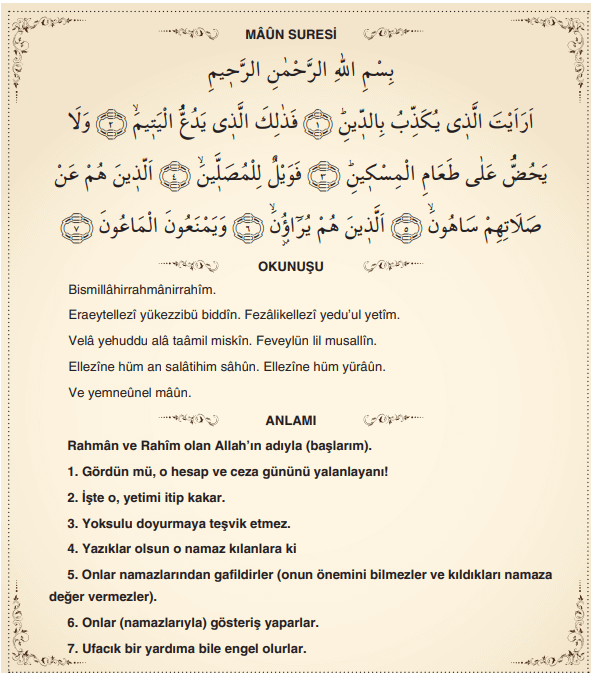 MÂÛN SURESİ
بِسْمِ اللهِ الرَّحْمٰنِ الرَّح۪يمِ
اَرَاَيْتَ الَّذ۪ي يُكَذِّبُ بِالدّ۪ينِۜ ﴿١﴾ فَذٰلِكَ الَّذ۪ي يَدُعُّ الْيَت۪يمَۙ ﴿٢﴾ وَلَا
يَحُضُّ عَلٰى طَعَامِ الْمِسْك۪ينِۜ ﴿٣﴾ فَوَيْلٌ لِلْمُصَلّ۪ينَۙ ﴿٤﴾ اَلَّذ۪ينَ هُمْ عَنْ
صَلَاتِهِمْ سَاهُونَۙ ﴿٥﴾ اَلَّذ۪ينَ هُمْ يُرَٓاؤُ۫نَۙ ﴿٦﴾ وَيَمْنَعُونَ الْمَاعُونَ ﴿٧﴾
OKUNUŞU
Bismillâhirrahmânirrahîm.
Eraeytellezî yükezzibü biddîn. Fezâlikellezî yedu’ul yetîm.
Velâ yehuddu alâ taâmil miskîn. Feveylün lil musallîn.
Ellezîne hüm an salâtihim sâhûn. Ellezîne hüm yürâûn.
Ve yemneûnel mâûn.
ANLAMI
Rahmân ve Rahîm olan Allah’ın adıyla (başlarım).
1. Gördün mü, o hesap ve ceza gününü yalanlayanı!
2. İşte o, yetimi itip kakar.
3. Yoksulu doyurmaya teşvik etmez.
4. Yazıklar olsun o namaz kılanlara ki
5. Onlar namazlarından gafildirler (onun önemini bilmezler ve kıldıkları namaza
değer vermezler).
6. Onlar (namazlarıyla) gösteriş yaparlar.
7. Ufacık bir yardıma bile engel olurlar.